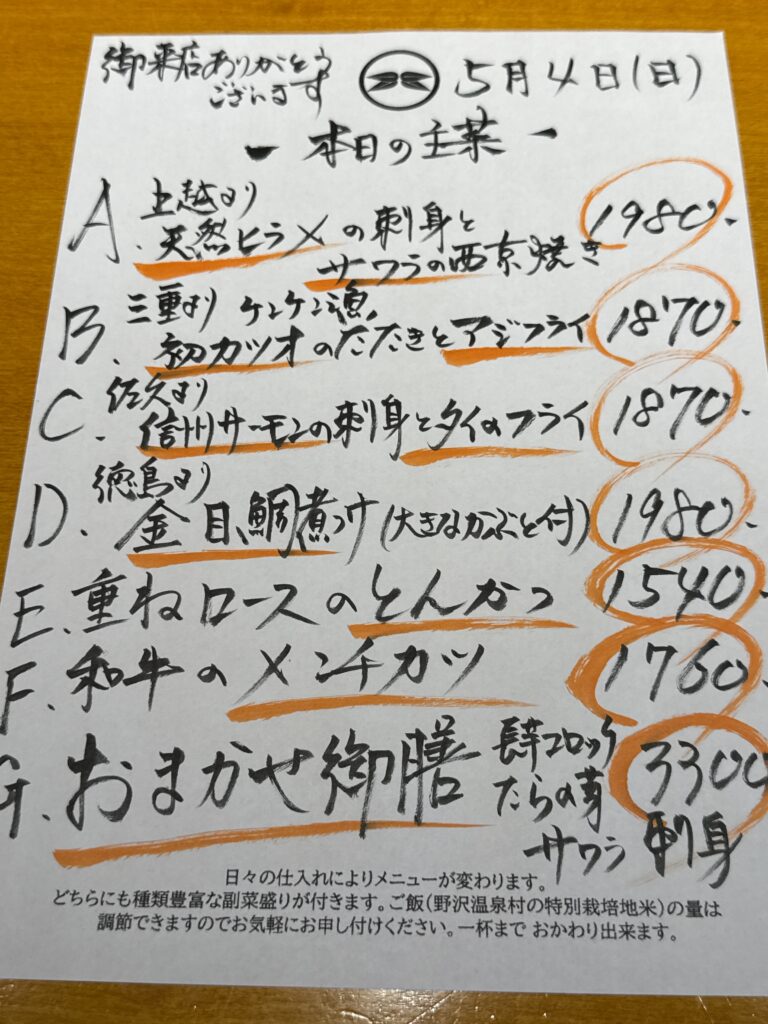 御来店ありがとう
ございます
5月4日(日)
ー 本日の主菜 ー
A. 上越より
天然ヒラメの刺身と
サワラの西京焼き 1980-
B. 三重より ケンケン漁
初カツオのたたきとアジフライ 1870-
C. 佐久より
信州サーモンの刺身とタイのフライ 1870-
D. 徳島より
金目鯛煮つけ(大きなかぶと付) 1980-
E. 重ねロースのとんかつ 1540-
F. 和牛のメンチカツ 1760-
G. おまかせ御膳 長芋コロッケ 3300
たらの芽
サワラ 刺身
日々の仕入れによりメニューが変わります。
どちらにも種類豊富な副菜盛りが付きます。ご飯(野沢温泉村の特別栽培地米)の量は
調節できますのでお気軽にお申し付けください。一杯まで おかわり出来ます。